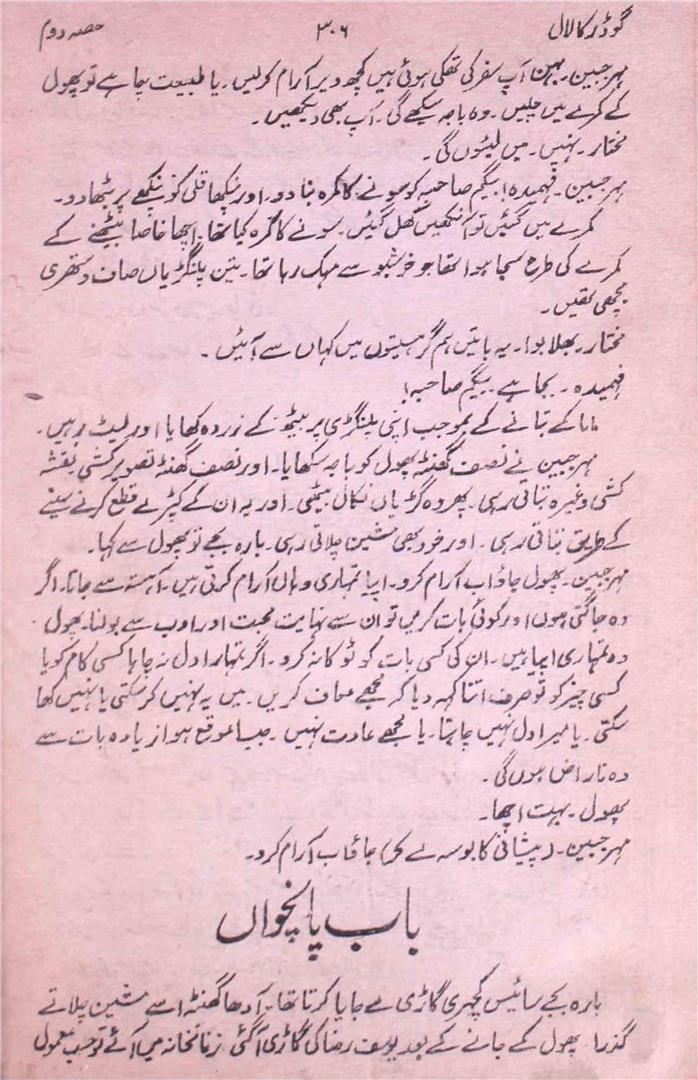 گوڈر کا لال ۳۰۶ حصہ دوم
مہر جبین۔ بہن آپ سفر کی تھکی ہوئی ہیں کچھ دیر آرام کرلیں۔ یا طبیعت چاہے تو پھول
کے کمرے میں چلیں۔ وہ باجہ سیکھے گی۔ آپ بھی دیکھیں۔
مختار۔ نہیں۔ میں لیٹوں گی۔
مہر جبین۔ فہمیدہ! بیگم صاحبہ کو سونے کا کمرہ بتا دو۔ اور پنکھا قلی کو پنکھے پر بٹھا دو۔
کمرے میں گئیں تو آنکھیں کھل گئیں۔ سونے کا کمرہ کیا تھا۔ اچھا خاصا بیٹھنے کے
کمرے کی طرح سجا ہوا تھا جو خوشبو سے مہک رہا تھا۔ تین پلنگڑیاں صاف و ستھری
بچھی تھیں۔
مختار۔ بھلا بوا۔ یہ باتیں ہم گرہستیوں میں کہاں سے آئیں۔
فہمیدہ۔ بجا ہے بیگم صاحبہ!
ماما کے بتانے کے بموجب اپنی پلنگڑی پر بیٹھ کے زردہ کھایا اور لیٹ رہیں۔
مہر جبین نے نصف گھنٹہ پھول کو باجہ سکھایا۔ اور نصف گھنٹہ تصویر کشی نقشہ
کشی وغیرہ بتاتی رہی۔ پھر وہ گڑیاں نکال بیٹھی۔ اور یہ ان کے کپڑے قطع کرنے سینے
کے طریق بتاتی رہی۔ اور خود بھی مشین چلاتی رہی۔ بارہ بجے تو پھول سے کہا۔
مہر جبین۔ پھول جاؤ اب آرام کرو۔ اپیا تمہاری وہاں آرام کرتی ہیں۔ آہستہ سے جانا۔ اگر
وہ جاگتی ہوں اور کوئی بات کریں تو ان سے نہایت محبت اور ادب سے بولنا۔ پھول۔
وہ تمہاری اپیا ہیں۔ ان کی کسی بات کو ٹوکا نہ کرو۔ اگر تمہارا دل نہ چاہا کسی کام کو یا
کسی چیز کو تو صرف اتنا کہہ دیا کہ مجھے معاف کریں۔ میں یہ نہیں کرسکتی یا نہیں کھا
سکتی۔ یا میرا دل نہیں چاہتا۔ یا مجھے عادت نہیں۔ جیسا موقع ہوا زیادہ بات سے
وہ ناراض ہوں گی۔
پھول۔ بہت اچھا۔
مہر جبین۔ (پیشانی کا بوسہ لے کر) جاؤ اب آرام کرو۔
باب پانچواں
بارہ بجے سائیس کچہری گاڑی لے جایا کرتا تھا۔ آدھا گھنٹہ اسے مشین چلاتے
گذرا۔ پھول کے جانے کے بعد یوسف رضا کی گاڑی آگئی۔ زنانخانہ میں آئے تو حسب معمول